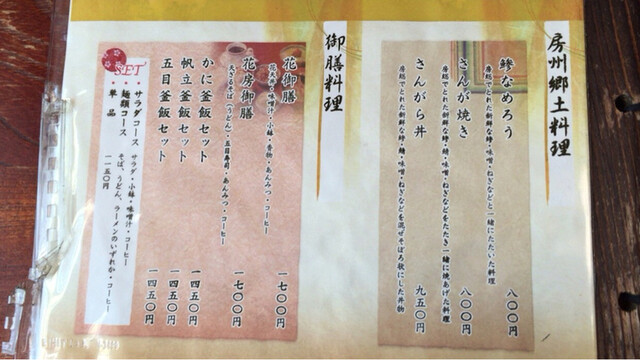 房州郷土料理
鯵なめろう
房総でとれた新鮮な鯵・味噌・ねぎなどと一緒にたたいた料理
八〇〇円
さんが焼き
房総でとれた新鮮な鯵・味噌・ねぎなどをたたき一緒に焼あげた料理
八〇〇円
さんがら丼
房総でとれた新鮮な鯵・味噌・ねぎなどを混ぜそぼろ状にした丼物
九五〇円
御膳料理
花御膳
花天丼・味噌汁・小鉢・香物・あんみつ・コーヒー
一七〇〇円
花房御膳
天ざるそば(うどん)・五目寿司・あんみつ・コーヒー
一七〇〇円
かに釜飯セット
一四五〇円
帆立釜飯セット
一四五〇円
五目釜飯セット
一四五〇円
SET
サラダコース サラダ・小鉢・味噌汁・コーヒー
麺類コース そば、うどん、ラーメンのいずれか・コーヒー
単品 一一五〇円